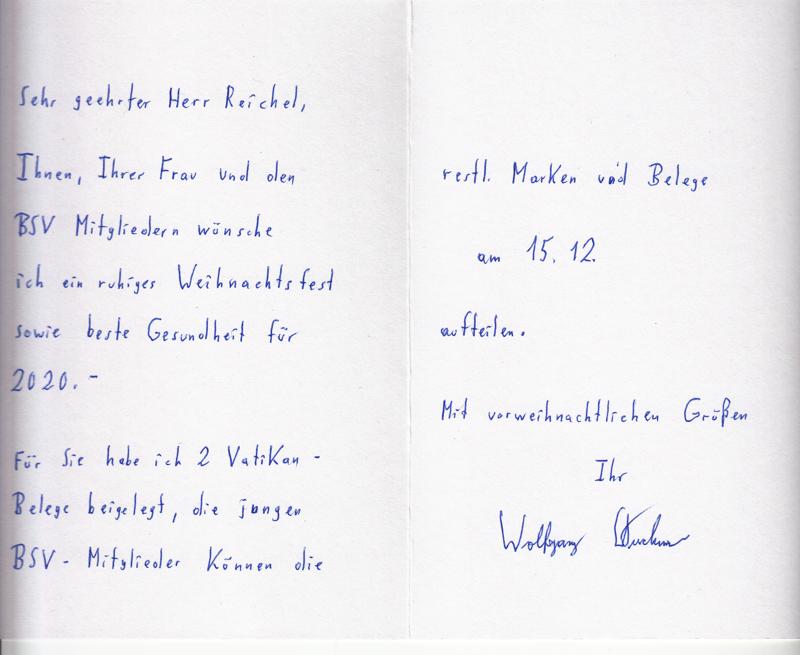 Sehr geehrter Herr Reichel,
Ihnen, Ihrer Frau und den
BSV Mitgliedern wünsche
ich ein ruhiges Weihnachtsfest
sowie beste Gesundheit für
2020.-
Für Sie habe ich 2 Vatikan-
Belege beigelegt, die jungen
BSV-Mitglieder können die
restl. Marken und Belege
am 15.12.
aufteilen.
Mit vorweihnachtlichen Grüßen
Ihr
Wolfgang